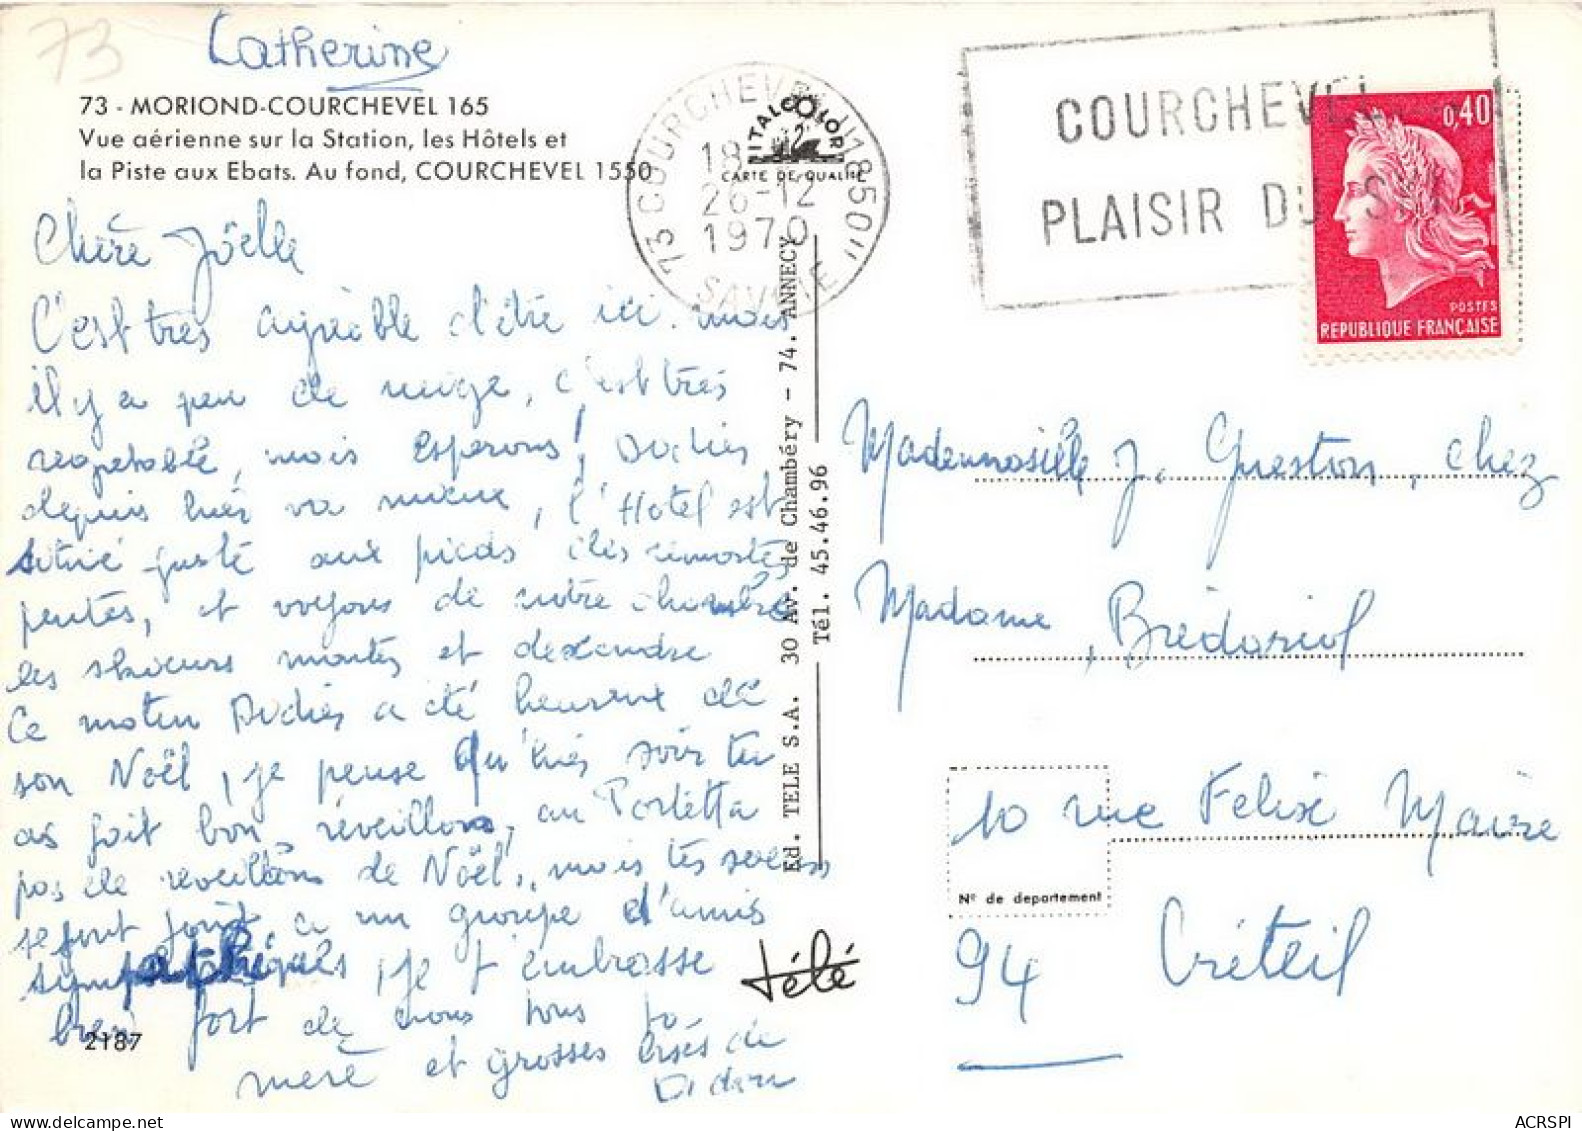 73
Catherine
73 - MORIOND-COURCHEVEL 165
Vue aérienne sur la Station, les Hôtels et
la Piste aux Ebats. Au fond, COURCHEVEL 1550
Chère Joëlle
C'est très agréable d'être ici. mais
il y a peu de neige, c'est très
regretable, mais esperons! Didier
depuis hier va mieux, l'Hotel est
situé juste aux pieds des remontes
pentes, et voyons de notre chambre
les skieurs montés et descendre
Ce matin Didier a été heureux de
son Noël, je pense qu'hier soir tu
as fait bon réveillon, au Porletta
pas de reveillons de Noël, mais tes soeurs
se sont joint a un groupe d'amis
sympathiques, je t'embrasse
bien fort de nous tous ta
mère et grosses bises de
Didier
2187
ITALCOLOR
CARTE DE QUALITÉ
73 COURCHEVEL "1850"
18
26-12
1970
SAVOIE
COURCHEVEL
PLAISIR DU SKI
0,40
POSTES
REPUBLIQUE FRANÇAISE
Ed. TELE S.A. 30 Av. de Chambéry - 74. ANNECY
Tél. 45.46.96
télé
Mademoiselle J. Gueston, chez
Madame, Brédariol
10 rue Felix Maire
N° de departement
94 Créteil
ACRSPI